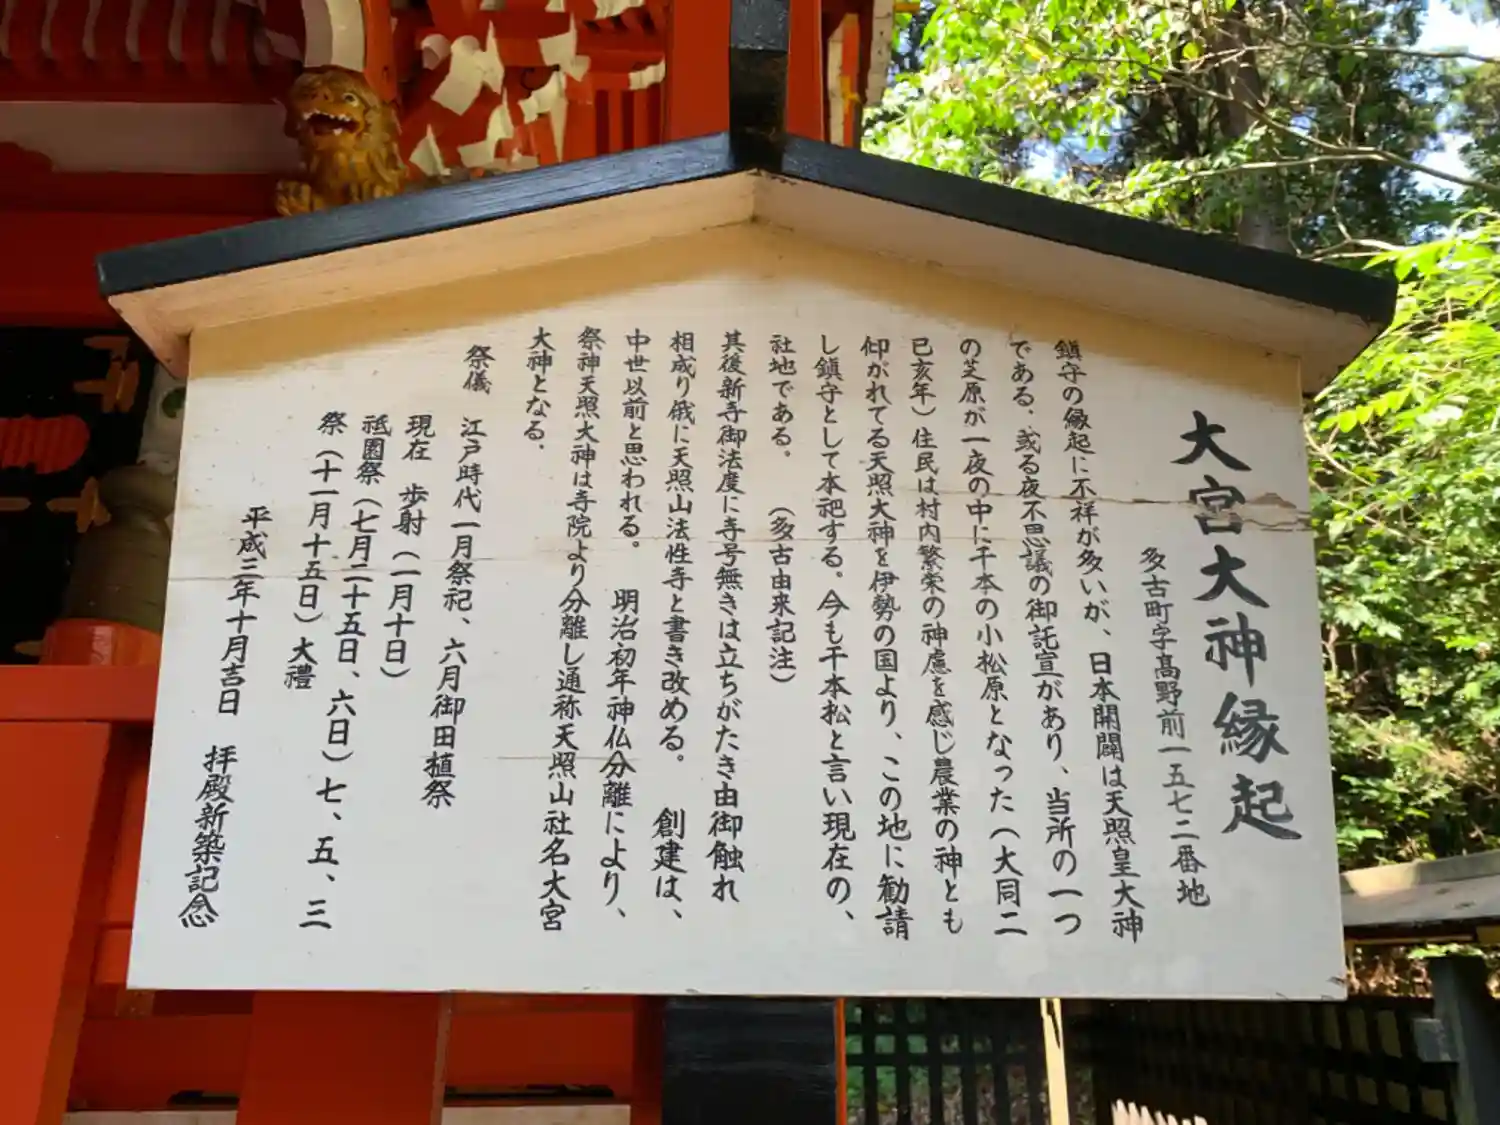 大宮大神縁起
多古町字髙野前一五七二番地
鎮守の縁起に不祥が多いが、日本開闢は天照皇大神
である、或る夜不思議の御託宣があり、当所の一つ
の芝原が一夜の中に千本の小松原となった（大同二
已亥年）住民は村内繁栄の神慮を感じ農業の神とも
仰がれてる天照大神を伊勢の国より、この地に勧請
し鎮守として本祀する。今も千本松と言い現在の、
社地である。（多古由来記注）
其後新寺御法度に寺号無きは立ちがたき由御触れ
相成り俄に天照山法性寺と書き改める。創建は、
中世以前と思われる。明治初年神仏分離により、
祭神天照大神は寺院より分離し通称天照山社名大宮
大神となる.
祭儀 江戸時代一月祭祀、六月御田植祭
現在 歩射（一月十日）
祗園祭（七月二十五日、六日）七、五、三
祭（十一月十五日）大禮
平成三年十月吉日 拝殿新築記念